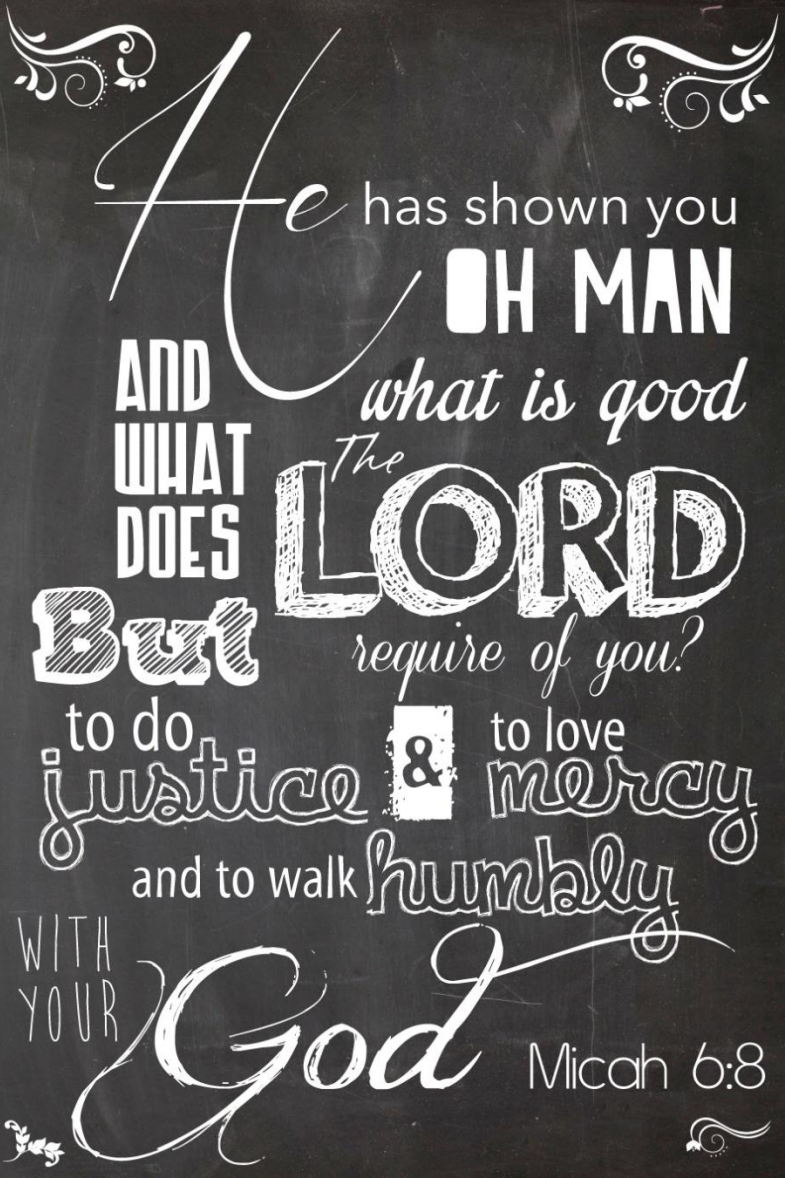 He has shown you
OH MAN
what is good
AND
WHAT
DOES
The
LORD
require of you?
But
to do
justice
&
to love
mercy
and to walk humbly
WITH
YOUR
God
Micah 6:8